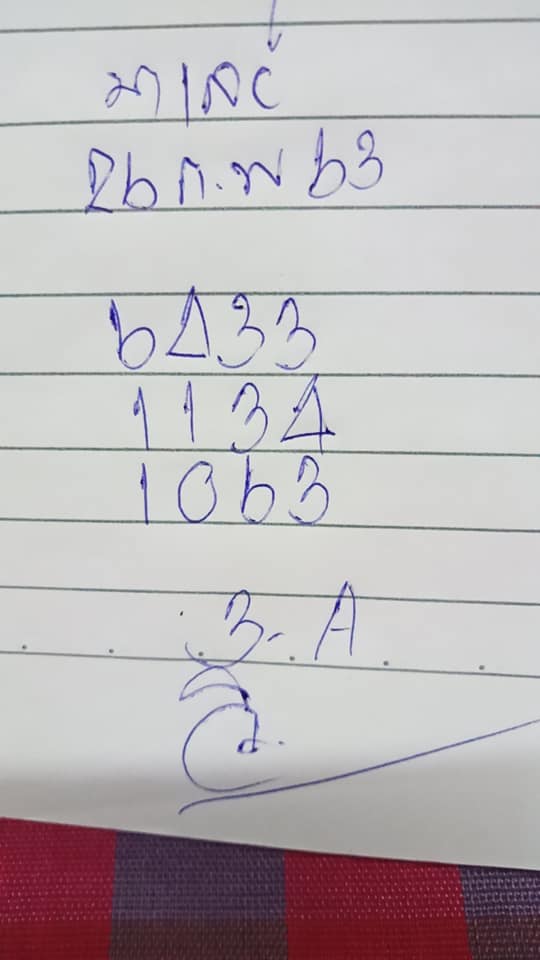 26 ก.พ 63
6433
1134
1063
3-A